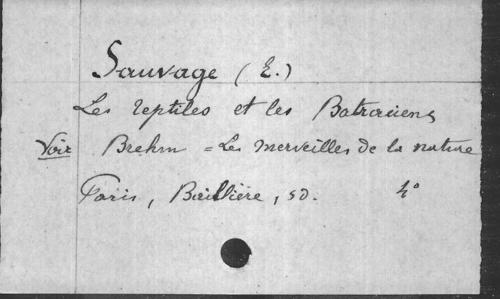 Sauvage (E.)
Les reptiles et les Batraciens
Voir Brehm = Les merveilles de la nature
Paris, Baillière, sd. 4°